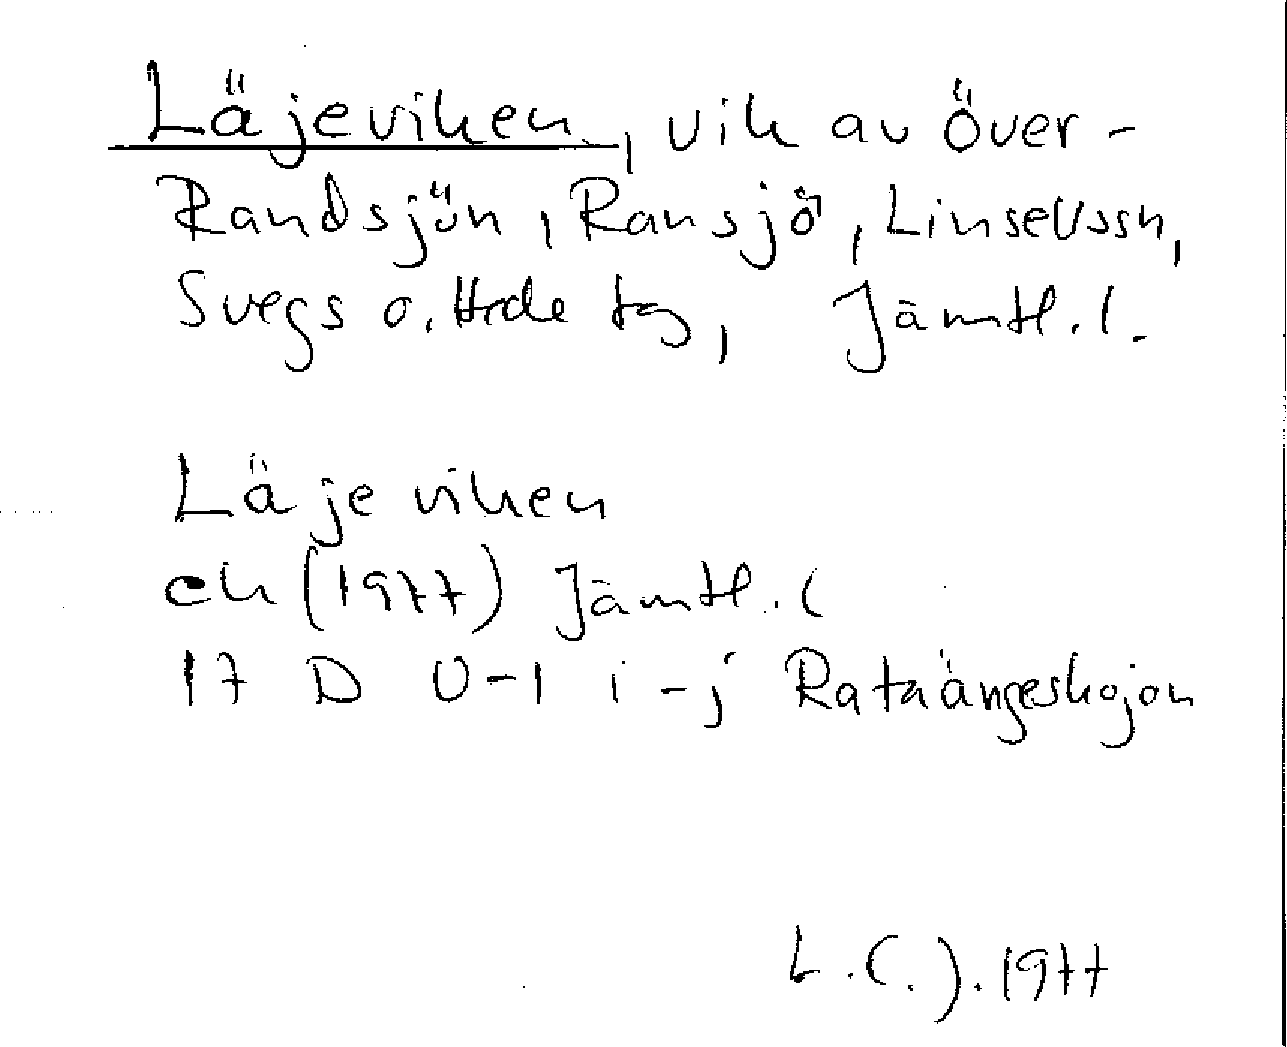 Läjeviken, vik av Över-
Randsjön, Ransjö, Linsellssn,
Svegs o. Hede tg, Jämtl. l.
Läjeviken
ek (1977) Jämtl. l
17 D 0-1 i-j Rataängeskojan
L. C. J. 1977